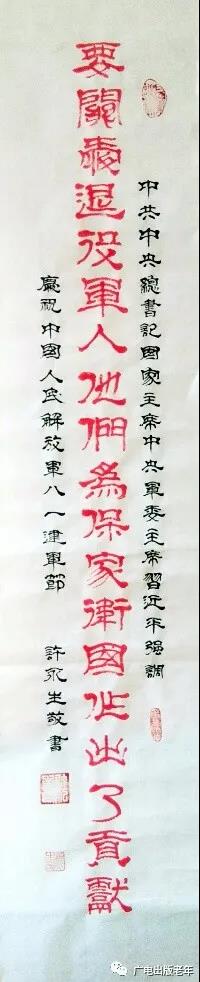 中共中央總書記國家主席中央軍委主席習近平强調
要關愛退役軍人他們為保家衛國作出了貢獻
慶祝中國人民解放軍八一建軍節 許永生敬書
广电出版老年